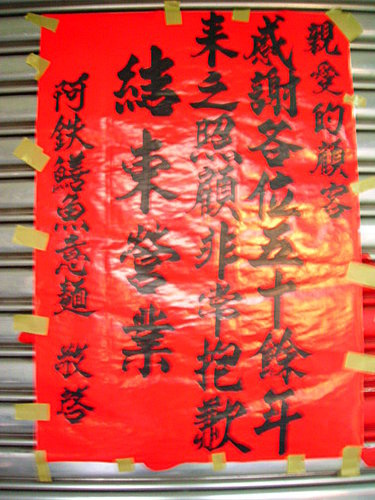 親愛的顧客
感謝各位五十餘年
来之照顧非常抱歉
結束營業
阿鉄鱔魚意麵 敬啓